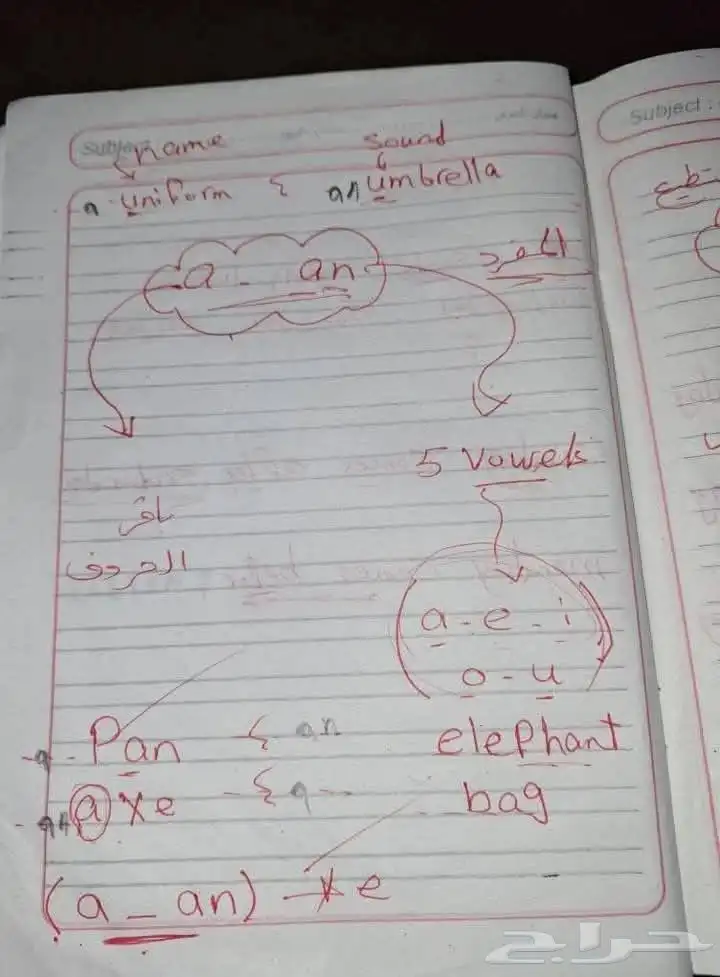 Subject: name sound
Subject:
a uniform { an umbrella
a - an المفرد
5 Vowels
باقي
الحروف
a - e - i
o - u
- a - Pan { an elephant
- an axe - { a - bag
(a - an) xe
حراج